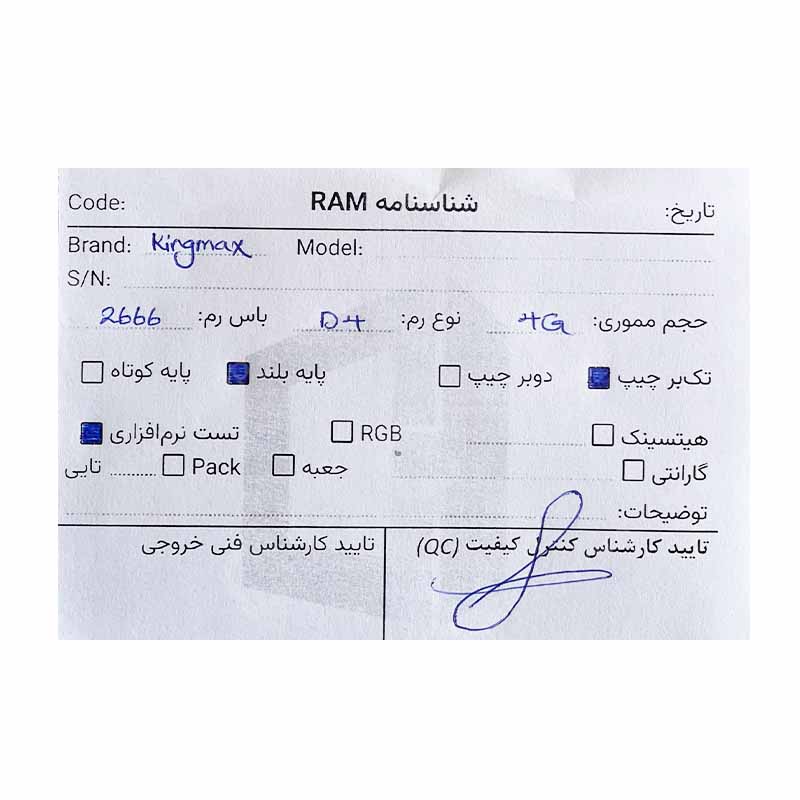 Code: شناسنامه RAM تاریخ:
Brand: Kingmax Model:
S/N:
حجم مموری: 4G نوع رم: D4 باس رم: 2666
تک‌بر چیپ دوبر چیپ پایه بلند پایه کوتاه
هیتسینک RGB تست نرم‌افزاری
گارانتی جعبه Pack تایی
توضیحات:
تایید کارشناس کنترل کیفیت (QC) تایید کارشناس فنی خروجی